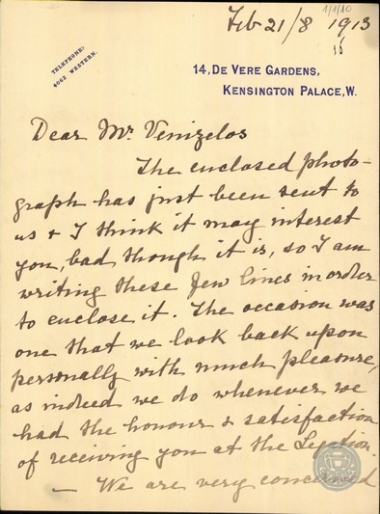 1/1/10
Feb 21/8 1913
TELEPHONE:
4062 WESTERN.
14, DE VERE GARDENS,
KENSINGTON PALACE, W.
Dear Mr. Venizelos
The enclosed photo-
graph has just been sent to
us & I think it may interest
you, bad though it is, so I am
writing these few lines in order
to enclose it. The occasion was
one that we look back upon
personally with much pleasure,
as indeed we do whenever we
had the honour & satisfaction
of receiving you at the Legation.
— We are very concerned